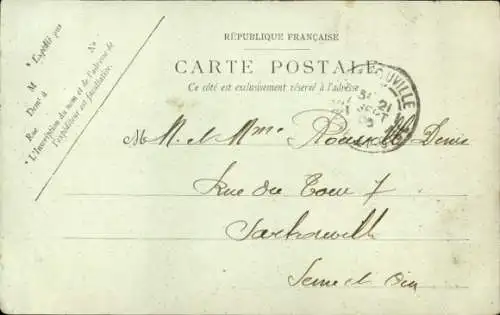 RÉPUBLIQUE FRANÇAISE
CARTE POSTALE
Ce côté est exclusivement réservé à l'adresse
* Expédié par
M N°
Dem^t à
Rue
* L'Inscription du nom et de l'adresse de
l'expéditeur est facultative.
OUVILLE
21
SEPT
M. et Mme Denis
Rue du 7
Sartrouville
Seine et Oise